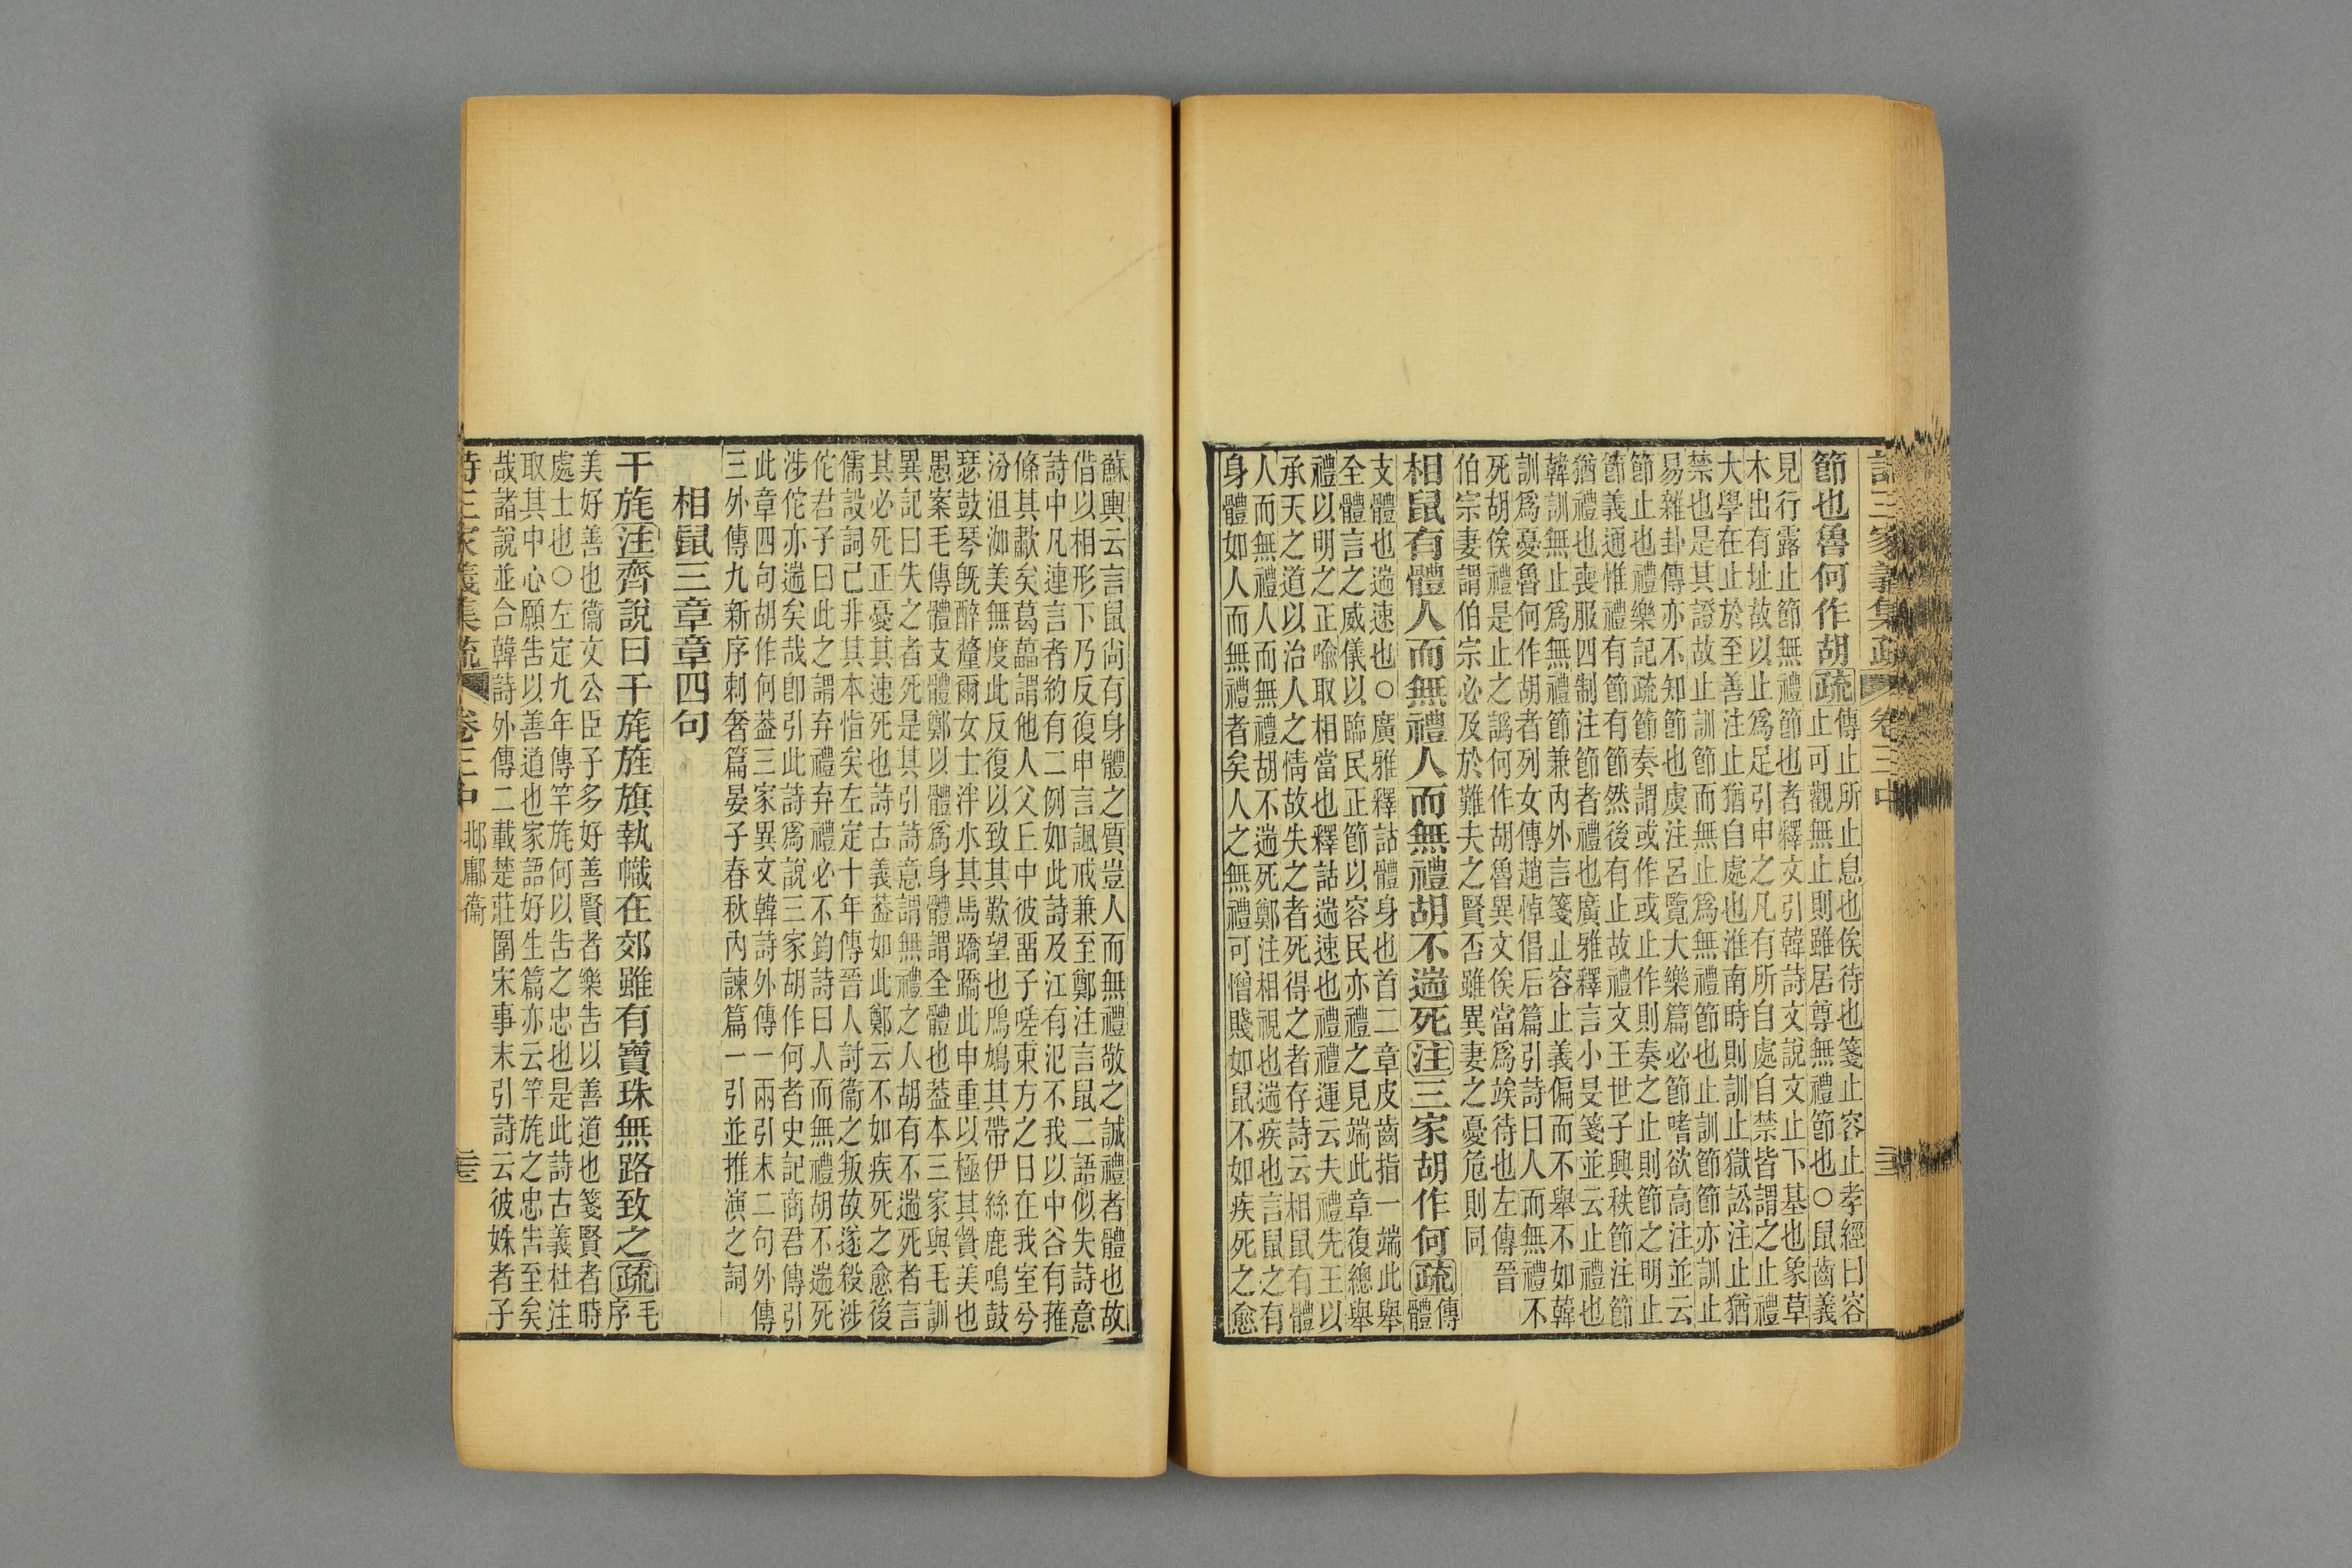 詩三家義集疏 卷三中 三二
節也魯何作胡疏傳止所止息也俟待也箋止容止孝經曰容
止可觀無止則雖居尊無禮節也○鼠齒義
見行露止節無禮節也者釋文引韓詩文說文止下基也象草
木出有址故以止爲足引申之凡有所自處自禁皆謂之止禮
大學在止於至善注止猶自處也淮南時則訓止獄訟注止猶
禁也是其證故止訓節而無止爲無禮節也止訓節節亦訓止
易雜卦傳亦不知節也虞注呂覽大樂篇必節嗜欲高注並云
節止也禮樂記疏節奏謂或作或止作則奏之止則節之明止
節義通惟禮有節有節然後有止故禮文王世子興秩節注節
猶禮也喪服四制注節者禮也廣雅釋言小旻箋並云止禮也
韓訓無止爲無禮節兼內外言箋止容止義偏而不舉不如韓
訓爲憂魯何作胡者列女傳趙悼倡后篇引詩曰人而無禮不
死胡俟禮是止之譌何作胡魯異文俟當爲竢待也左傳晉
伯宗妻謂伯宗必及於難夫之賢否雖異妻之憂危則同
相鼠有體人而無禮人而無禮胡不遄死注三家胡作何疏傳
體
支體也遄速也○廣雅釋詁體身也首二章皮齒指一端此舉
全體言之威儀以臨民正節以容民亦禮之見端此章復總舉
禮以明之正喻取相當也釋詁遄速也禮禮運云夫禮先王以
承天之道以治人之情故失之者死得之者存詩云相鼠有體
人而無禮人而無禮胡不遄死鄭注相視也遄疾也言鼠之有
身體如人而無禮者矣人之無禮可憎賤如鼠不如疾死之愈
蘇輿云言鼠尙有身體之質豈人而無禮敬之誠禮者體也故
偕以相形下乃反復申言諷戒兼至鄭注言鼠二語似失詩意
詩中凡連言者約有二例如此詩及江有汜不我以中谷有蓷
條其歗矣葛藟謂他人父丘中彼畱子嗟東方之日在我室兮
汾沮洳美無度此反復以致其歎望也鳲鳩其帶伊絲鹿鳴鼓
瑟鼓琴旣醉釐爾女士泮水其馬蹻蹻此申重以極其贊美也
愚案毛傳體支體鄭以體爲身體謂全體也葢本三家與毛訓
異記曰失之者死是其引詩意謂無禮之人胡有不遄死者言
其必死正憂其速死也詩古義葢如此鄭云不如疾死之愈後
儒設詞己非其本恉矣左定十年傳晉人討衞之叛故遂殺涉
佗君子曰此之謂弃禮弃禮必不鈞詩曰人而無禮胡不遄死
涉佗亦遄矣哉卽引此詩爲說三家胡作何者史記商君傳引
此章四句胡作何葢三家異文韓詩外傳一兩引末二句外傳
三外傳九新序刺奢篇晏子春秋內諫篇一引並推演之詞
相鼠三章章四句
干旄注齊說曰干旄旌旗執幟在郊雖有寶珠無路致之疏毛
序
美好善也衞文公臣子多好善賢者樂吿以善道也箋賢者時
處士也○左定九年傳竿旄何以吿之忠也是此詩古義杜注
取其中心願吿以善道也家語好生篇亦云竿旄之忠吿至矣
哉諸說並合韓詩外傳二載楚莊圍宋事末引詩云彼姝者子
詩三家義集疏 卷三中 邶鄘衞 三三